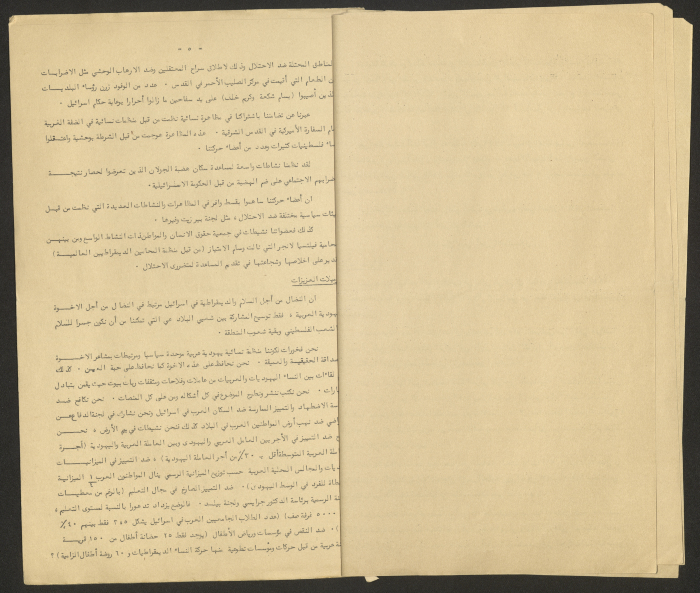 - ٥ -
المناطق المحتلة ضد الاحتلال وذلك لاطلاق سراح المعتقلين وضد الارهاب الوحشي مثل الاضرابات
عن الطعام التي أقيمت في مركز الصليب الأحمر في القدس . عدد من الوفود زرن رؤساء البلديات
الذين أصيبوا (بسام شكعة وكريم خلف) على يد سفاحين ما زالوا أحرارا برعاية حكام اسرائيل .
عبرنا عن تضامننا باشتراكنا في مظاهرة نسائية نظمت من قبل منظمات نسائية في الضفة الغربية
أمام السفارة الأميركية في القدس الشرقية . هذه المظاهرة هوجمت من قبل الشرطة بوحشية واعتقلوا
نساء فلسطينيات كثيرات وعدد من أعضاء حركتنا .
لقد نظمنا نشاطات واسعة لمساعدة سكان هضبة الجولان الذين تعرضوا لحصار نتيجة
اضرابهم الاجتماعي على ضم الهضبة من قبل الحكومة الاسرائيلية .
ان أعضاء حركتنا ساهموا بقسط وافر في المظاهرات والنشاطات العديدة التي نظمت من قبل
هيئات سياسية مختلفة ضد الاحتلال ، مثل لجنة بير زيت وغيرها .
كذلك فعضواتنا نشيطات في جمعية حقوق الانسان والمواطن ذات النشاط الواسع ومن بينهن
المحامية فيليتسيا لانجر التي نالت وسام الامتياز (من قبل منظمة المحامين الديمقراطيين العالمية)
على اخلاصها وشجاعتها في تقديم المساعدة لمتضرري الاحتلال .
الزميلات العزيزات
ان النضال من أجل السلام والديمقراطية في اسرائيل مرتبط في النضال من أجل الاخوة
اليهودية العربية ، فقط توسيع المشاركة بين شعبي البلاد هي التي تمكننا من أن نكون جسرا للسلام
الشعب الفلسطيني وبقية شعوب المنطقة .
نحن فخورات لكوننا منظمة نسائية يهودية عربية موحدة سياسيا ومرتبطات بمشاعر الاخوة
الصداقة الحقيقية والعميقة . نحن نحافظ على هذه الاخوة كما نحافظ على حبة العين . كذلك
لقاءات بين النساء اليهوديات والعربيات من عاملات وفلاحات ومثقفات وربات بيوت حيث يقمن بتبادل
نحن نكتب ننشر ونطرح الموضوع في كل أشكاله ومن فوق كل المنصات . نحن نكافح ضد
سياسة الاضطهاد والتمييز الممارسة ضد السكان العرب في اسرائيل ونحن نشارك في لجنة الدفاع عن
الأراضي ضد نهب أرض المواطنين العرب في البلاد كذلك فنحن نشيطات في يوم الأرض ، نحن
ضد التمييز في الأجر بين العامل العربي واليهودي وبين العاملة العربية واليهودية (أجرة
العاملة العربية المتوسطة أقل بـ ٣٠٪ من أجر العاملة اليهودية) ، ضد التمييز في الميزانيات
للبلديات والمجالس المحلية العربية حسب توزيع الميزانية الرسمي ينال المواطنون العرب الميزانية
المعطاة للفرد في الوسط اليهودي) . ضد التمييز الصارخ في مجال التعليم (بالرغم من معطيات
الرسمية برئاسة الدكتور جرايسي ولجنة بيلد . فالوضع يزداد تدهورا بالنسبة لمستوى التعليم ،
٥٠٠٠ غرفة صف) (عدد الطلاب الجامعيين العرب في اسرائيل يشكل ٢٨٥ فقط بينهم ٤٠٪
ضد النقص في مؤسسات ورياض الأطفال (يوجد فقط ٢٥ حضانة أطفال من ١٥٠ قرية
عربية من قبل حركات ومؤسسات تطوعية منها حركة النساء الديمقراطيات و ٦٠ روضة أطفال الزامية) ؟